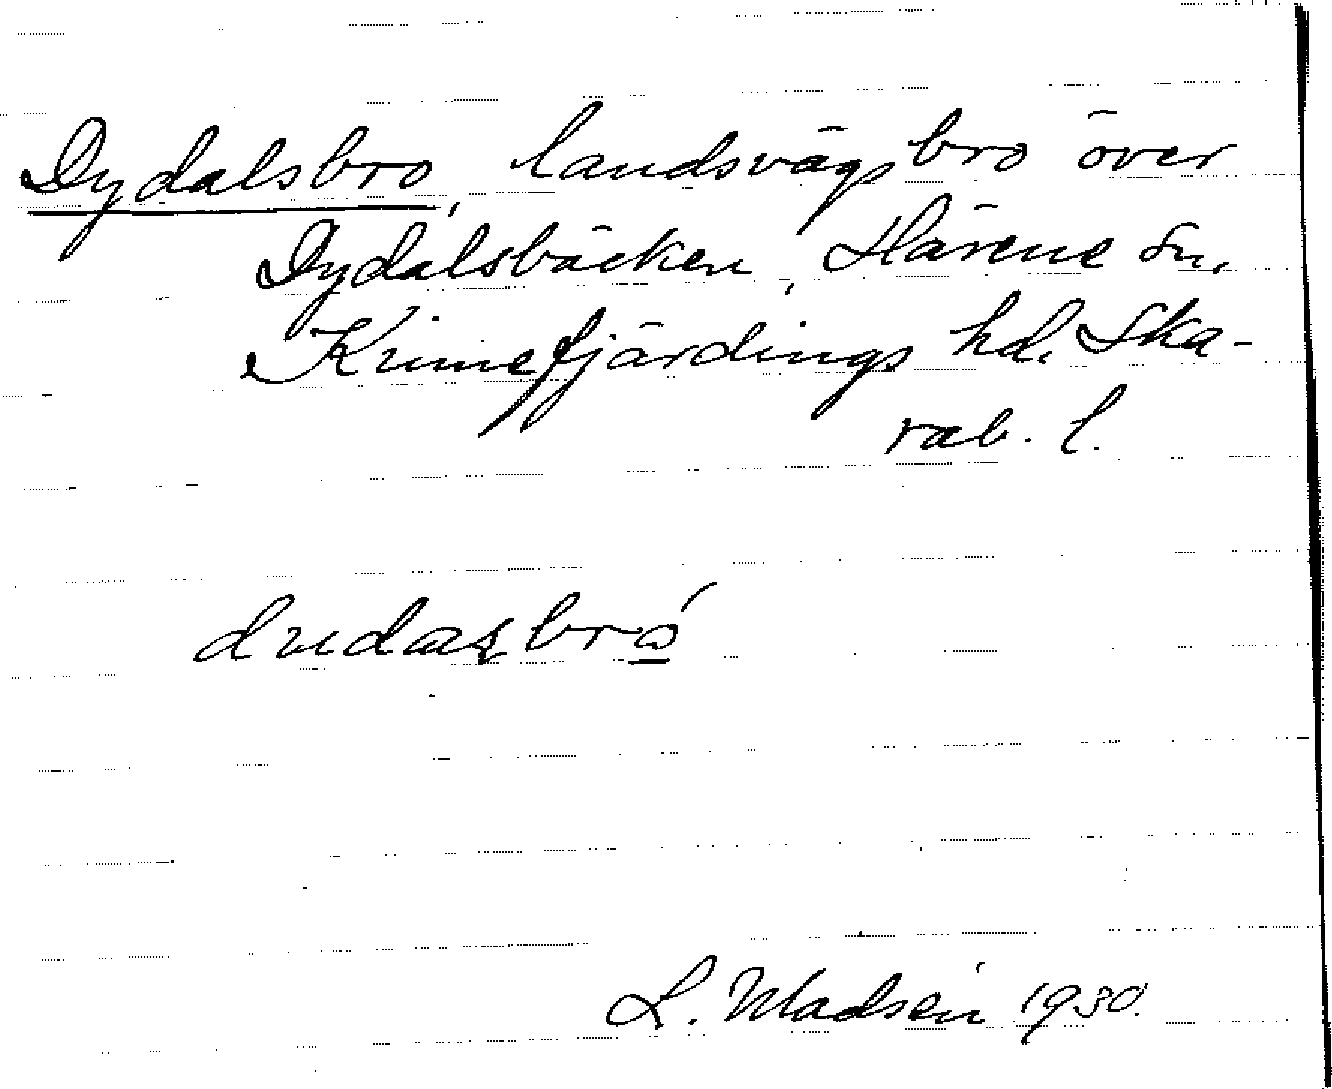 Dydalsbro, landsvägsbro över
Dydalsbäcken, Härene sn,
Kinnefjärdings hd. Ska-
rab. l.
dudasbro
L. Madsén 1930.